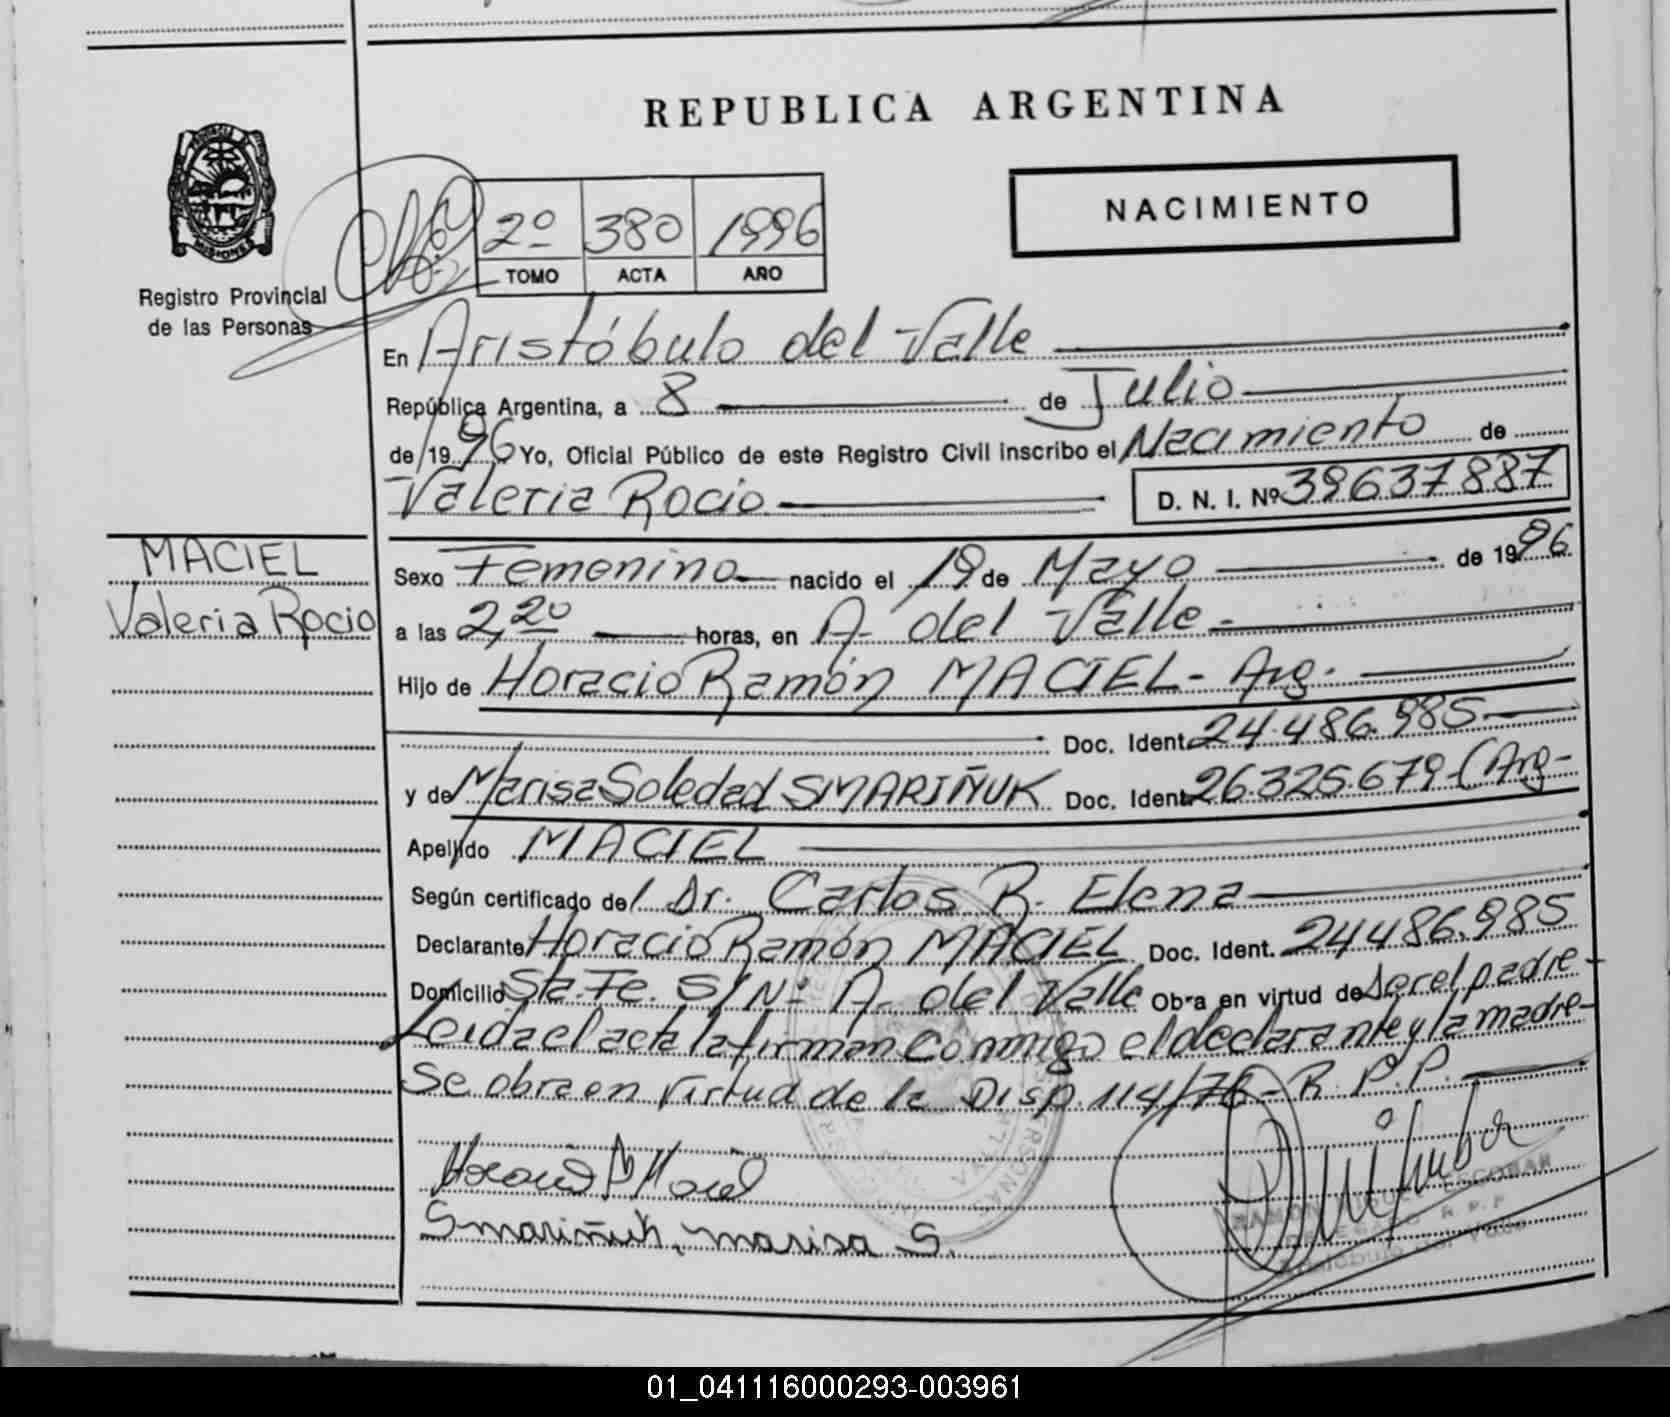 REPUBLICA ARGENTINA
PROVINCIA DE
MISIONES
Registro Provincial
de las Personas
NACIMIENTO
2º 380 1996
TOMO ACTA AÑO
En Aristóbulo del Valle
República Argentina, a 8 de Julio
de 1996 Yo, Oficial Público de este Registro Civil inscribo el Nacimiento de
Valeria Rocio D. N. I. Nº 39637887
MACIEL
Valeria Rocio
Sexo Femenino nacido el 19 de Mayo de 1996
a las 2,20 horas, en A. del Valle.
Hijo de Horacio Ramón MACIEL - Arg.
Doc. Ident. 24.486.985
y de Marisa Soledad SMARIÑUK Doc. Ident. 26.325.679 - (Arg-
Apellido MACIEL
Según certificado del Dr. Carlos R. Elena
Declarante Horacio Ramón MACIEL Doc. Ident. 24486.985
Domicilio Sta. Fe. S/Nº A. del Valle Obra en virtud de ser el padre -
Leida el acta la firman conmigo el declarante y la madre -
Se obra en virtud de la Disp. 114/76 - R. P. P.
Smariñuk, marisa S.
RAMON MIGUEL ESCOBAR
R. P. P.
Aristóbulo del Valle
01_041116000293-003961